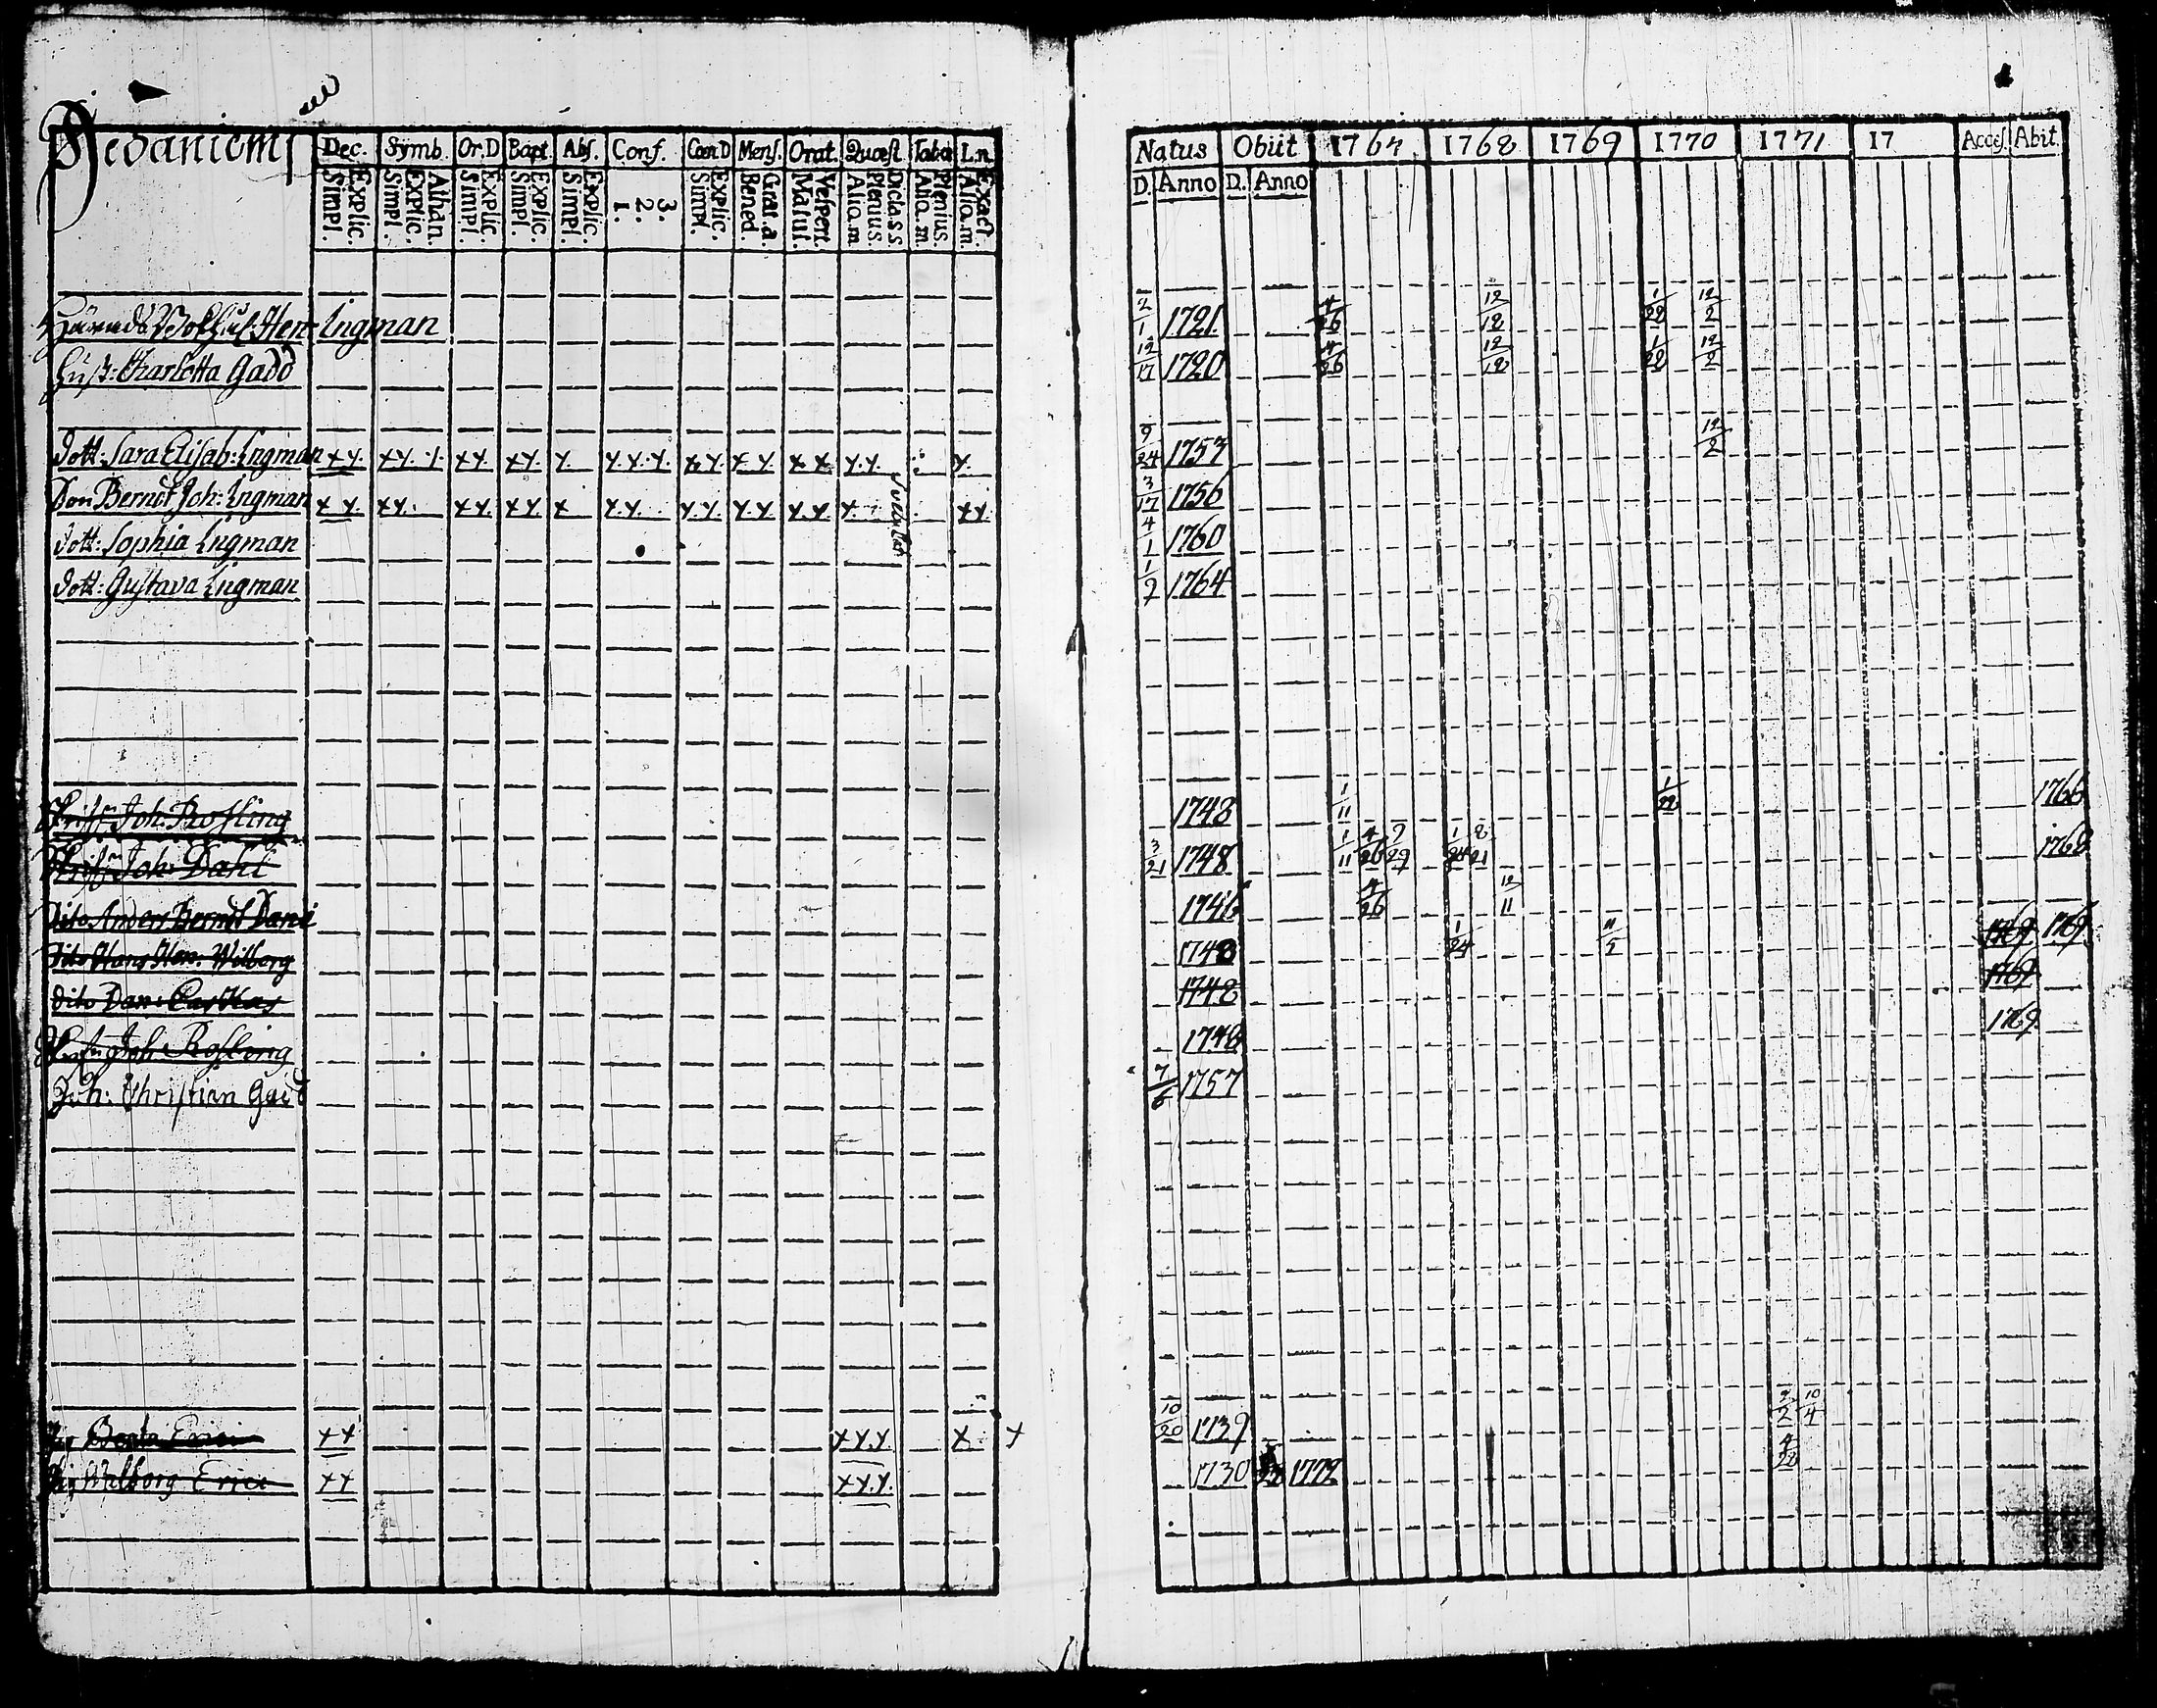 Dec. Symb. Or.D Bapt. Abs. Conf. Coen.D Mens. Orat. Quæst. Taba L.n.
Explic. Simpl. Athan. Explic. Simpl. Explic. Simpl. Explic. Simpl. Explic. Simpl. 3. 2. 1. Explic. Simpl. Grat.a. Bened. Vespert. Matut. Dicta.s.s. Plenius. Aliq.m Plenius. Aliq.m Exact. Aliq.m.
Hen: Ingman
Hust: Charlotta Gadd
dott: Sara Elisab: Ingman x y. x y. y. x y. x y. y. y. y. y. x y. x y. x x y. y. y.
Son Berndt Joh: Ingman x y. x y. x y. x y. x y. y. y. y. y. y. x x y. x y.
dott: Sophia Ingman
dott: Gustava Ingman
Joh: Rosling
Joh: Dahl
Dito Anders Berndt
Dito Hans Hen: Wilborg
Dito Dan:
Joh: Rosling
Joh: Christian Gadd
Erici x x x y. y x x
Walborg Erici x x x y. y.
Natus Obiit 1764 1768 1769 1770 1771 17 Acces. Abit.
D. Anno D. Anno
2/1 1721 4/26 12/18 1/28 12/2
12/17 1720 4/26 12/18 1/28 12/2
9/24 1753 12/2
3/17 1756
4/1 1760
1/7 1764
1748 1/11 1/22 1766
3/21 1748 1/11 4/26 9/29 1/24 8/21 1768
1746 4/26 12/11
1748 1/24 11/2 1769 1769
1748 1769
1748 1769
7/6 1757
10/20 1739 2/2 10/4
1730 1772 4/28